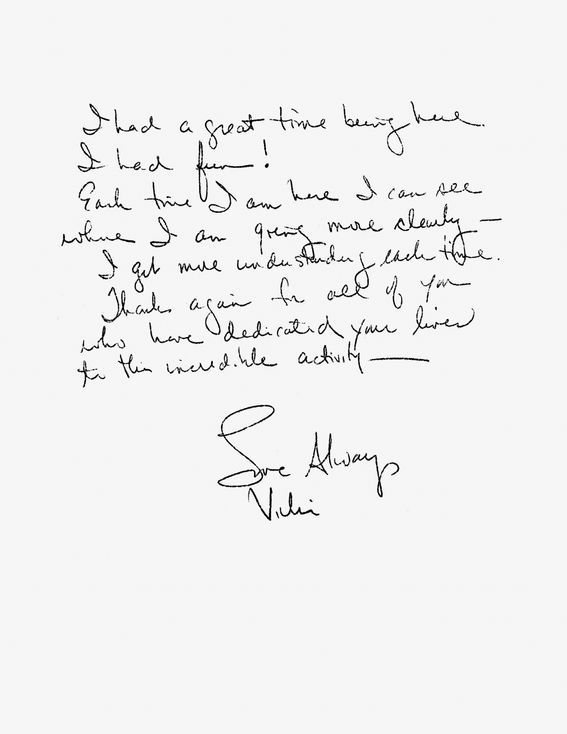 I had a great time being here.
I had fun!
Each time I am here I can see
where I am going more clearly —
I get more understanding each time.
Thanks again for all of you
who have dedicated your lives
to this incredible activity —
Love Always
Vicki